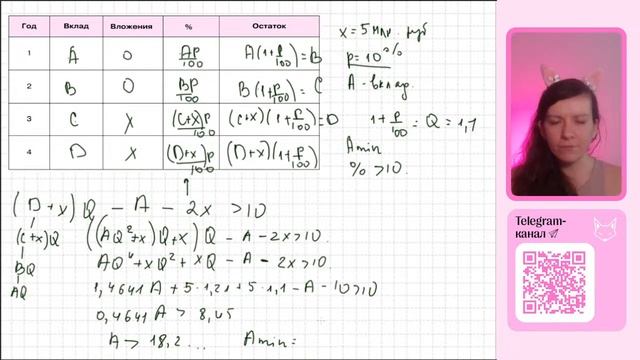 Год Вклад Вложения % Остаток
1 A 0 Ap/100 A(1+p/100)=B
2 B 0 Bp/100 B(1+p/100)=C
3 C x (C+x)p/100 (C+x)(1+p/100)=D
4 D x (D+x)p/100 (D+x)(1+p/100)
x = 5 млн. руб
p = 10%
A - вклад.
1+p/100 = Q = 1,1
Amin
% >10.
(D+x)Q - A - 2x >10
(C+x)Q
BQ
AQ
((AQ²+x)Q+x)Q - A - 2x >10.
AQ⁴+xQ²+xQ - A - 2x >10.
1,4641A + 5·1,21 + 5·1,1 - A - 10 >10
0,4641A > 8,45
A > 18,2... Amin =
Telegram-
канал